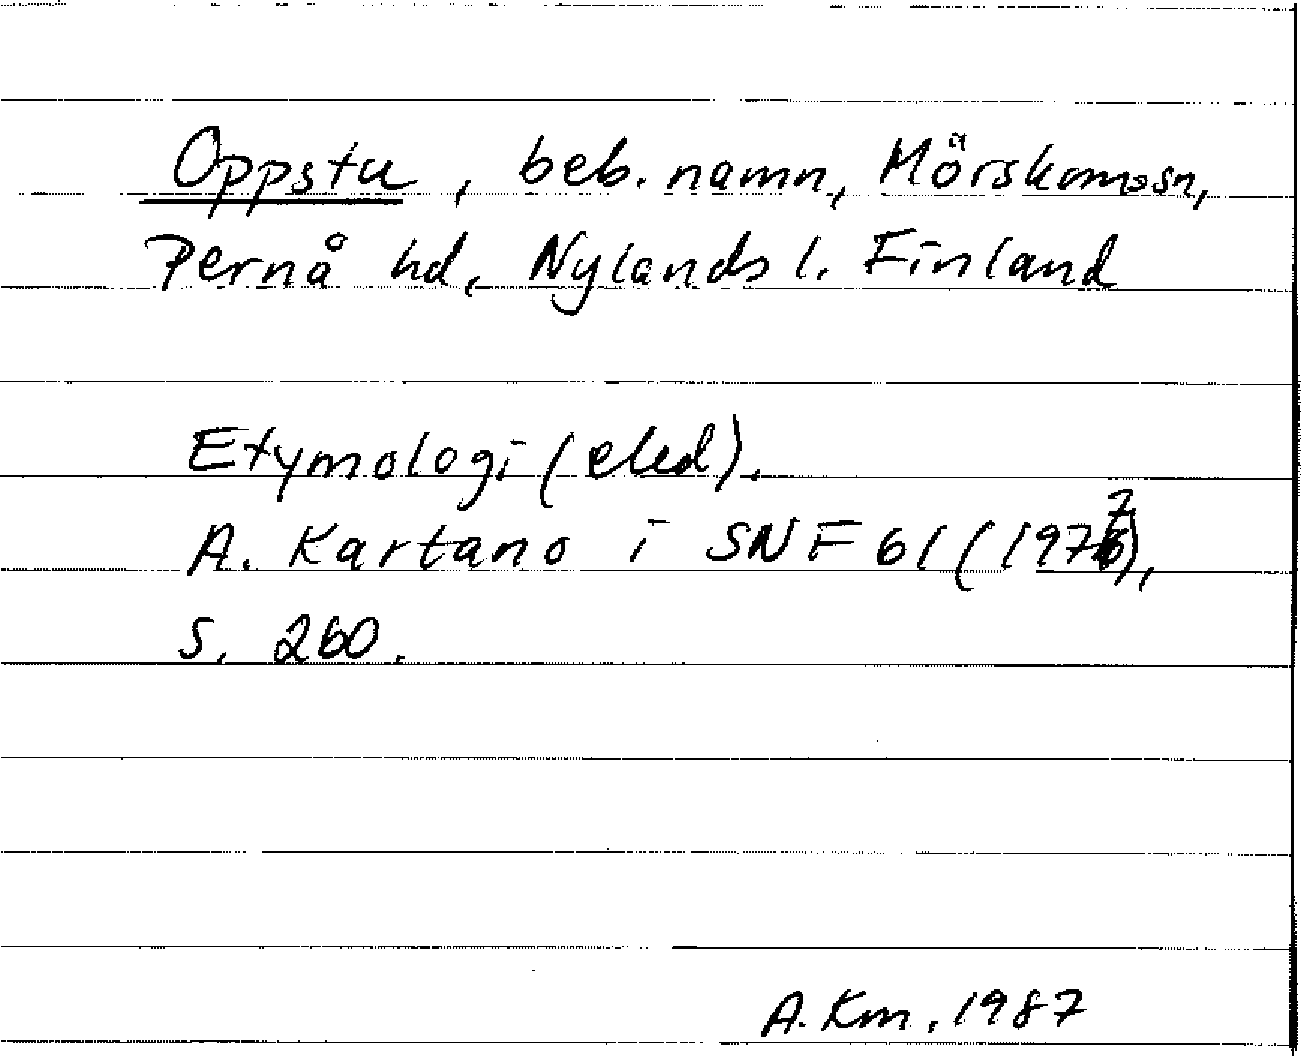 Oppstu, beb. namn, Mörskoms sn,
Pernå hd, Nylands l. Finland
Etymologi (eled).
A. Kartano i SNF 61 (1977),
s. 260.
A. Km. 1987